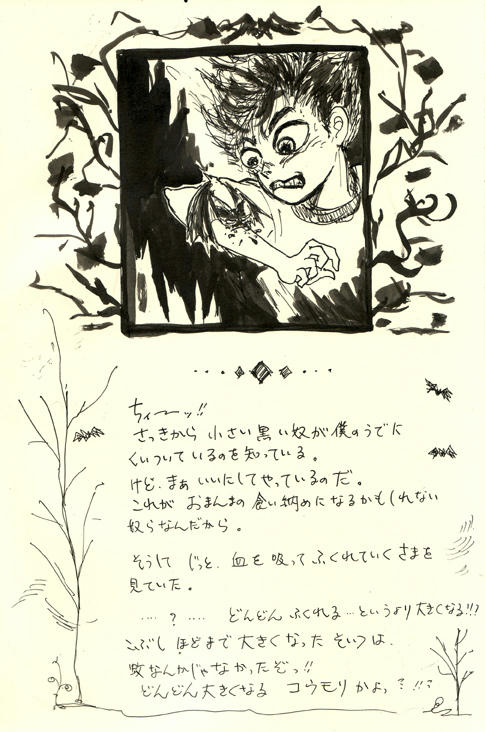 ちぃーーッ!!
さっきから 小さい黒い奴が僕のうでに
くいついているのを知っている。
けど、まぁ いいにしてやっているのだ。
これが おまんまの食い納めになるかもしれない
奴らなんだから。
そうして じっと、血を吸って ふくれていくさまを
見ていた。
‥‥ ? ‥‥ どんどん ふくれる…というより大きくなる!!?
こぶし ほどまで 大きくなった そいつは、
蚊なんかじゃなかったぞっ!!
どんどん大きくなる コウモリかよっ?!!?